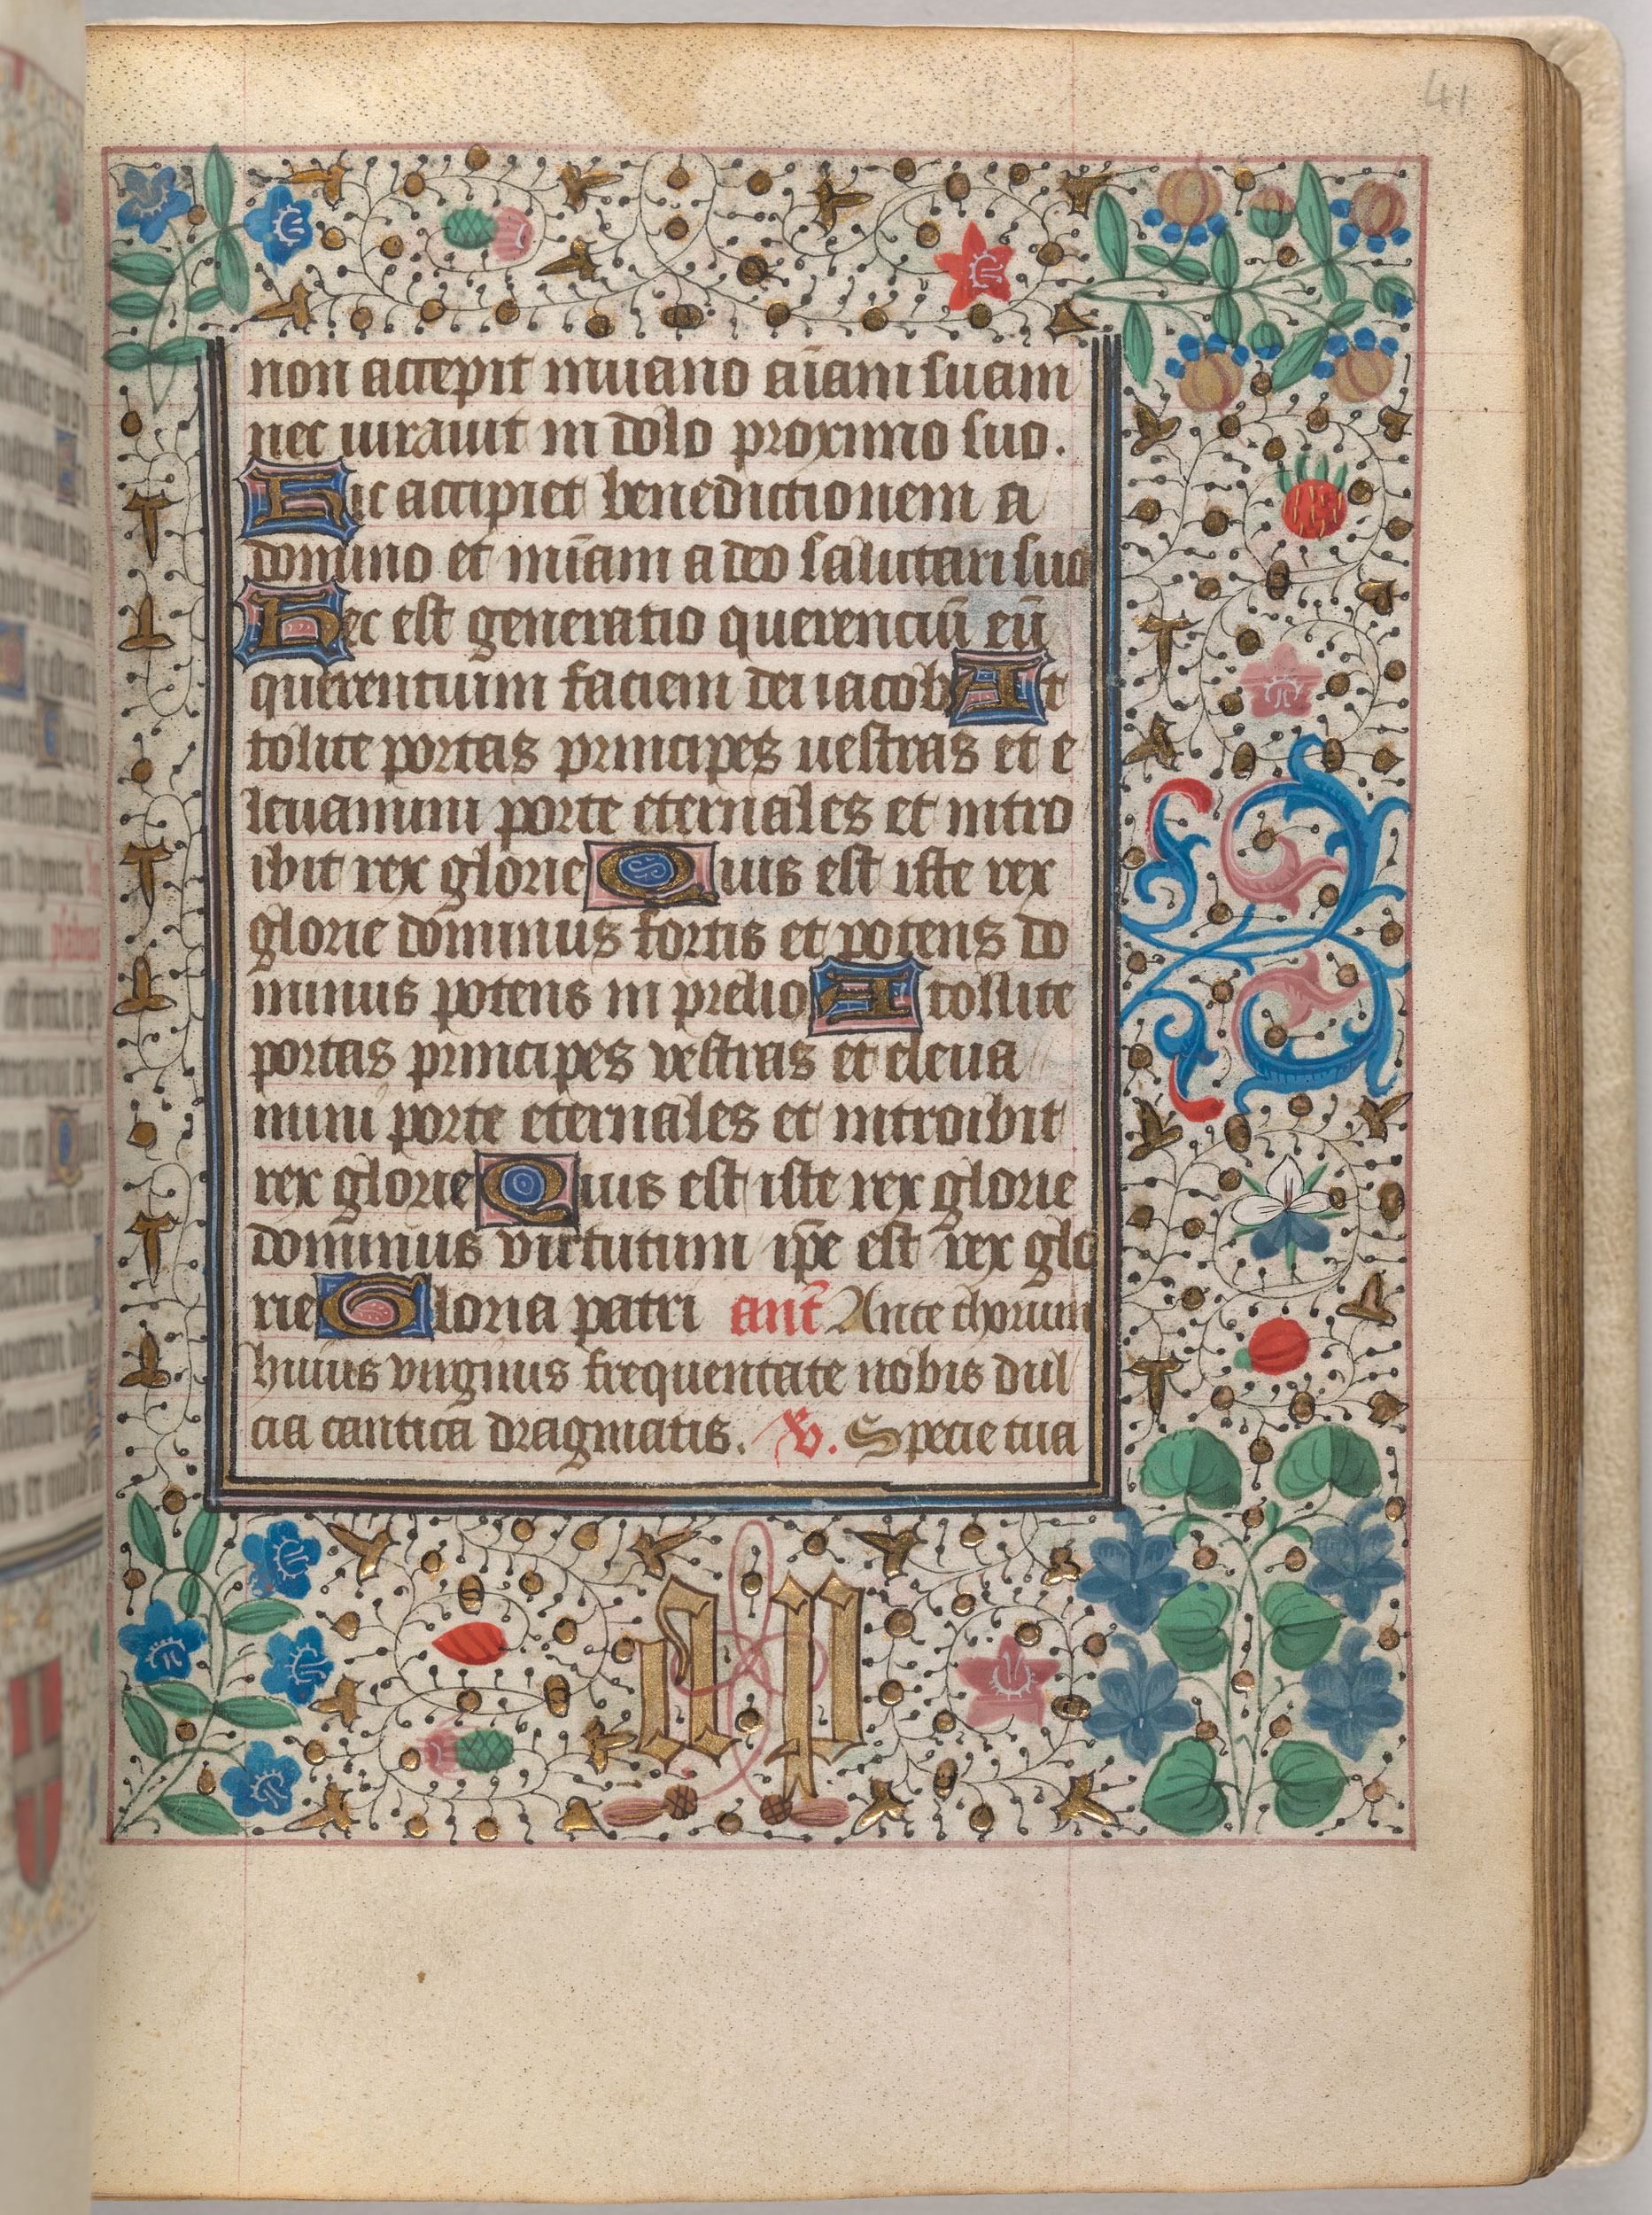 41
non accepit in uano aīam suam
nec iurauit in dolo proximo suo.
Hic accipiet benedictionem a
domino et mīam a deo salutari suo
Hec est generatio querenciū eū
querentium faciem dei iacob At
tolite portas principes uestras et e
leuamini porte eternales et intro
ibit rex glorie Quis est iste rex
glorie dominus fortis et potens do
minus potens in prelio Atollite
portas principes vestras et eleua
mini porte eternales et introibit
rex glorie Quis est iste rex glorie
dominus virtutum ip̄e est rex glo
rie Gloria patri ant̄ Ante thorum
huius virginis frequentate nobis dul
cia cantica dragmatis. V. Specie tua